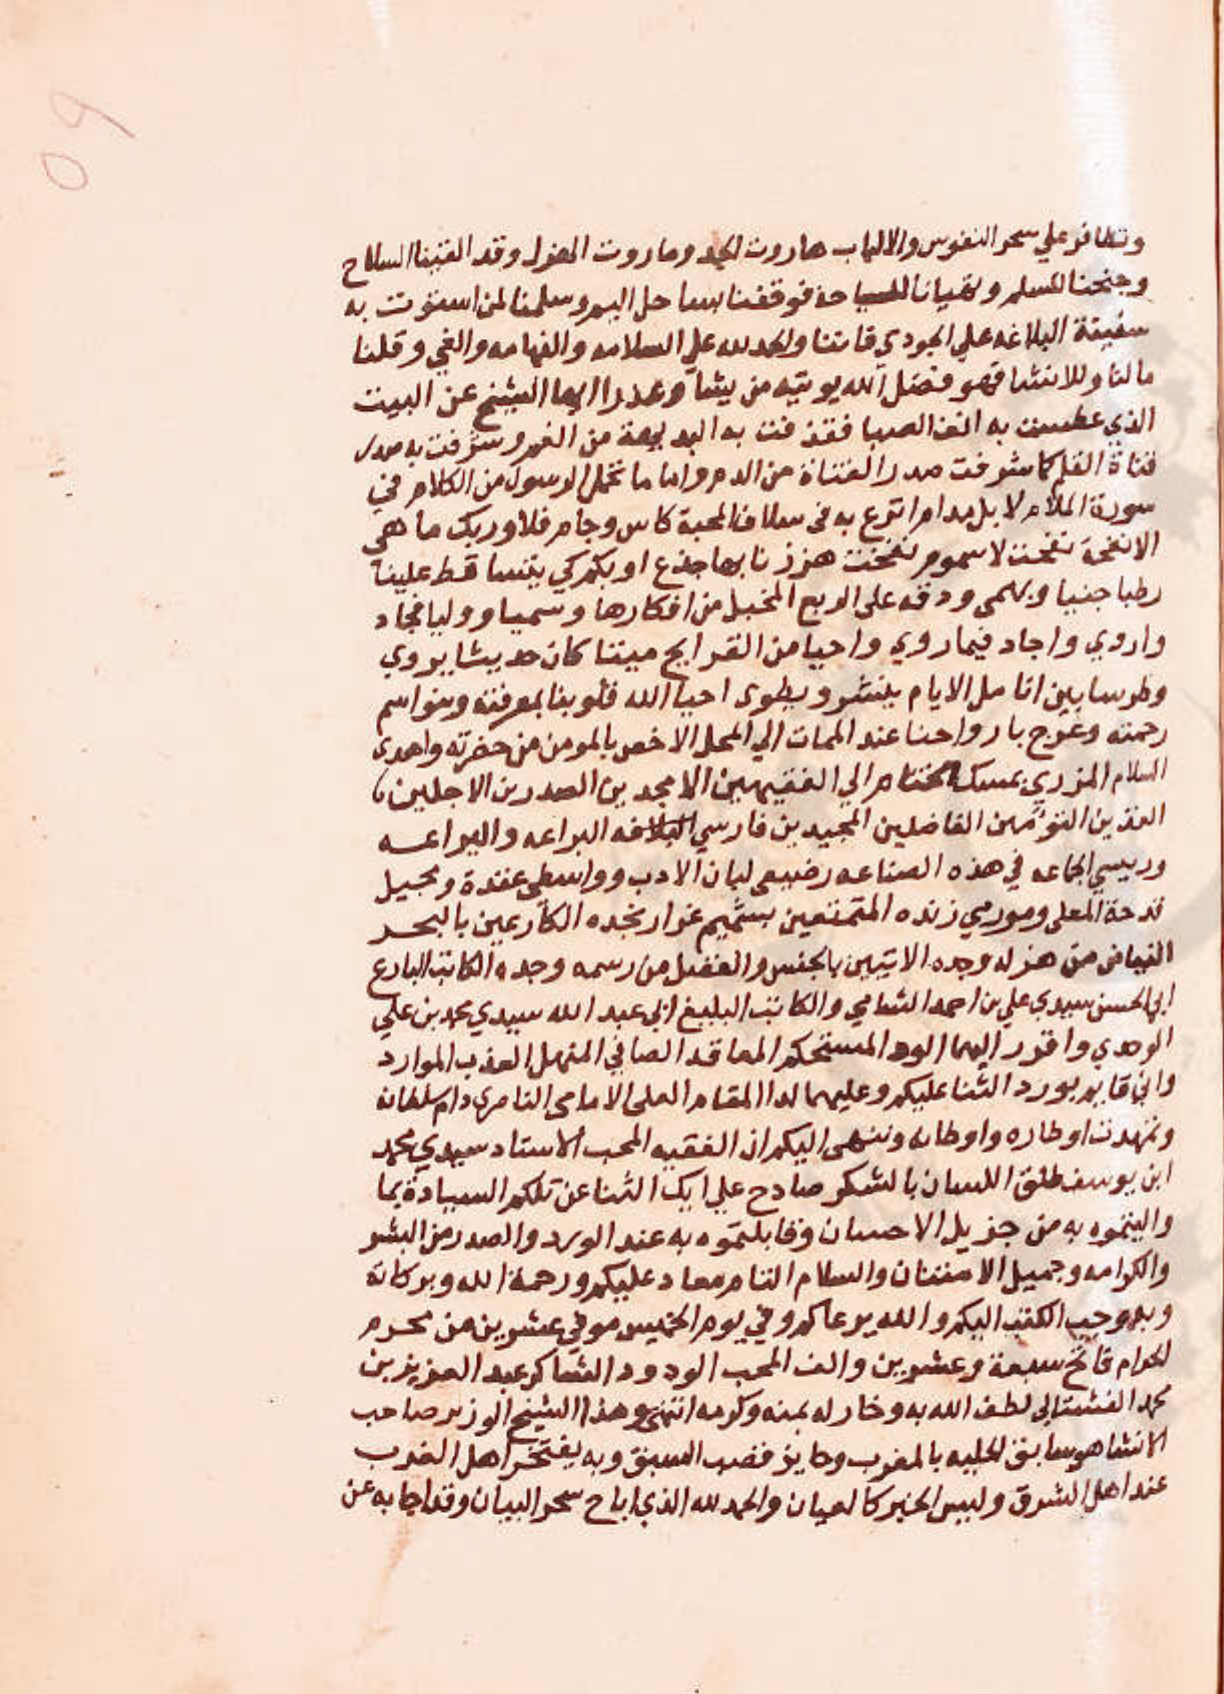 وتظافر علي سحر النفوس والالباب هاروت الجد وماروت الهزل وقد القينا السلاح
وجنحنا للسلم وتهيانا للسباحة فوقفنا بساحل اليم وسلمنا لمن استوت به
سفينة البلاغه علي الجودي قاتنا والحمد لله علي السلامه والفهامه والغي وقلنا
ما لنا وللانشا فهو فضل الله يوتيه من يشا وعدرا ايها الشيخ عن البيت
الذي عطست به انف الصبا فقذفت به البديهة من الفم وشرفت به صدر
قناة القلم كما شرفت صدر القناة من الدم واما ما تحمل الرسول من الكلام في
سورة الملام لا بل مدام اتوع به في سلاف المحبة كاس وجام فلا وربك ما هي
الا نفحة نفحت لا سموم نفخت هززنا بها جذع اوبكم كي يتساقط علينا
رطبا جنيا ويهمي ودقه علي الربع المخيل من افكارها وسميا ووليا فجاد
واروي واجاد فيما روي واحيا من القرايح ميتا كان حديثا يروي
وطرسا بين انامل الايام ينشر ويطوي احيا الله قلوبنا بمعرفته وبنواسم
رحمته وعرج بارواحنا عند الممات الي المحل الاخص بالمومن من حضرته واهدي
السلام المزري بمسك الختام الي الفقيهين الامجدين الصدرين الاجلين
الفذين التوءمين الفاضلين المجيدين فارسي البلاغه البراعه واليراعه
ورييسي الجماعه في هذه الصناعه رضيعي لبان الادب وواسطي عقدة ومجيل
قدحة المعلي وموري زنده المتمتعين بشميم عرار نجده الكارعين بالبحر
الفياض من هزله وجده الاتيين بالجنس والفصل من رسمه وجده الكاتب البارع
ابي الحسن سيدي علي بن احمد الشامي والكاتب البليغ ابي عبد الله سيدي محمد بن علي
الوجدي واقرر اليهما الود المستحكم المعاقد الصافي المنهل العذب الموارد
واني قايم بورد الثنا عليكم وعليهما لدا المقام العلي الامامي الناصري دام سلطانه
وتمهدت اوطاره واوطانه وننهي اليكم ان الفقيه المحب الاستاد سيدي محمد
ابن يوسف طلق اللسان بالشكر صادح علي ايك الثنا عن تلكم السيادة بما
والينموه به من جزيل الاحسان وقابلتموه به عند الورد والصدر من البشر
والكرامه وجميل الامتنان والسلام التام معاد عليكم ورحمة الله وبركاته
وبه وجب الكتب اليكم والله يرعاكم وفي يوم الخميس موفي عشرين من محرم
الحرام فاتح سبعة وعشرين والف المحب الودود الشاكر عبد العزيز بن
محمد الفشتالي لطف الله به وخار له بمنه وكرمه انتهي وهذا الشيخ الوزير صاحب
الانشا هو سابق الحلبه بالمغرب وحايز قصب السبق وبه يفتخر اهل الغرب
عند اهل الشرق وليس الخبر كالعيان والحمد لله الذي اباح سحر البيان وقد اجابه عن